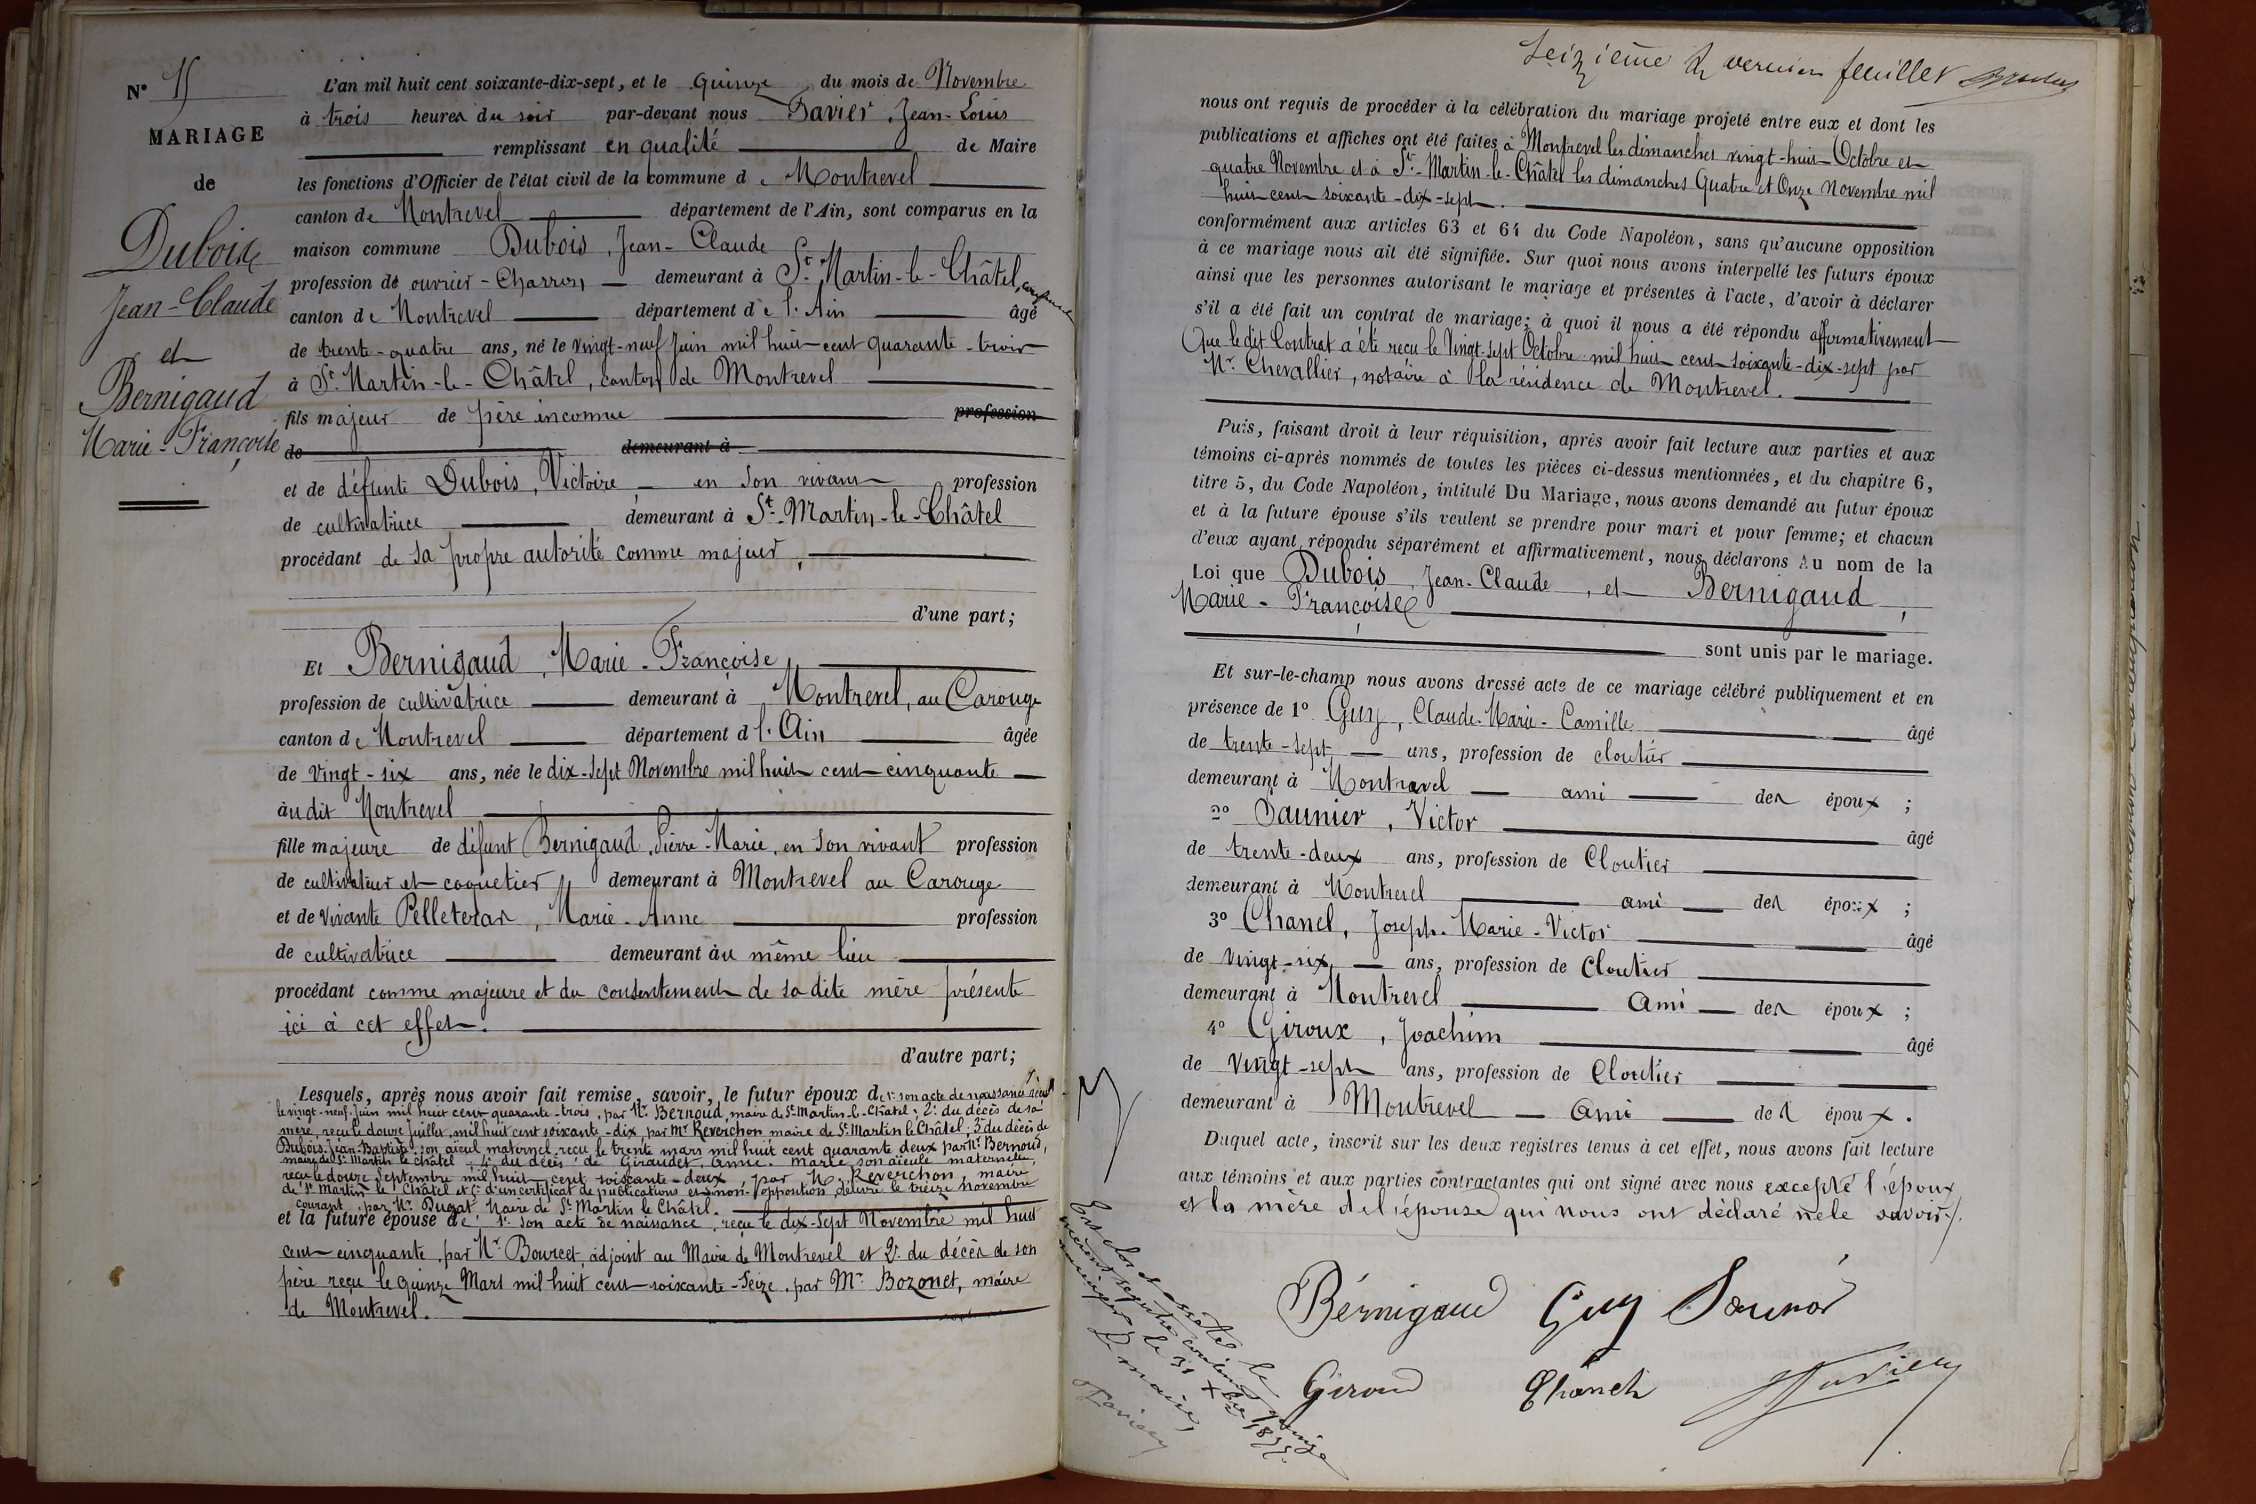 N° 15
MARIAGE
de
Dubois
Jean-Claude
et
Bernigaud
Marie-Françoise
L'an mil huit cent soixante-dix-sept, et le quinze du mois de Novembre
à trois heures du soir par-devant nous Favier, Jean-Louis
remplissant en qualité de Maire
les fonctions d'Officier de l'état civil de la commune de Montrevel
canton de Montrevel département de l'Ain, sont comparus en la
maison commune Dubois, Jean-Claude
profession de ouvrier-Charron demeurant à St-Martin-le-Châtel,
canton de Montrevel département de l'Ain âgé
de trente-quatre ans, né le vingt-neuf Juin mil huit cent quarante-trois
à St Martin-le-Châtel, canton de Montrevel
fils majeur de père inconnu profession
de demeurant à
et de défunte Dubois, Victoire, en son vivant profession
de cultivatrice demeurant à St-Martin-le-Châtel
procédant de sa propre autorité comme majeur,
d'une part;
Et Bernigaud, Marie-Françoise,
profession de cultivatrice demeurant à Montrevel, au Carouge
canton de Montrevel département de l'Ain âgée
de vingt-six ans, née le dix-sept Novembre mil huit cent cinquante
audit Montrevel
fille majeure de défunt Bernigaud, Pierre-Marie, en son vivant profession
de cultivateur et coquetier, demeurant à Montrevel au Carouge
et de vivante Pelleteras, Marie-Anne profession
de cultivatrice demeurant au même lieu
procédant comme majeure et du consentement de sa dite mère présente
ici à cet effet.
d'autre part;
Lesquels, après nous avoir fait remise, savoir, le futur époux de 1° son acte de naissance reçu
le vingt-neuf Juin mil huit cent quarante-trois, par Mr Bernoud, maire de St-Martin-le-Châtel; 2° du décès de sa
mère, reçu le douze Juillet mil huit cent soixante-dix, par Mr Reverchon maire de St Martin le Châtel; 3° du décès de
Dubois, Jean-Baptiste son aïeul maternel reçu le trente mars mil huit cent quarante deux par Mr Bernoud,
maire de St Martin le Châtel; 4° du décès de Giraudet, Anne Marie son aïeule maternelle,
reçu le douze Septembre mil huit cent soixante-deux, par Mr Reverchon, maire
de St Martin le Châtel et 5° d'un certificat de publications et non-opposition délivré le treize novembre
courant, par Mr Bugat Maire de St Martin le Châtel.
et la future épouse de 1° son acte de naissance, reçu le dix-sept Novembre mil huit
cent cinquante, par Mr Bourcet, adjoint au Maire de Montrevel et 2° du décès de son
père reçu le quinze Mars mil huit cent soixante-seize, par Mr Bozonet, maire
de Montrevel.
Est clos et arrêté le
présent registre contenant quinze
le 31 Xbre 1877.
Le maire,
Favier
Seizième et dernier feuillet
nous ont requis de procéder à la célébration du mariage projeté entre eux et dont les
publications et affiches ont été faites à Montrevel les dimanches vingt-huit Octobre et
quatre Novembre et à St-Martin-le-Châtel les dimanches Quatre et Onze Novembre mil
huit cent soixante-dix-sept.
conformément aux articles 63 et 64 du Code Napoléon, sans qu'aucune opposition
à ce mariage nous ait été signifiée. Sur quoi nous avons interpellé les futurs époux
ainsi que les personnes autorisant le mariage et présentes à l'acte, d'avoir à déclarer
s'il a été fait un contrat de mariage; à quoi il nous a été répondu affirmativement
Que le dit Contrat a été reçu le Vingt-sept Octobre mil huit cent soixante-dix-sept par
Mr Chevallier, notaire à la résidence de Montrevel.
Puis, faisant droit à leur réquisition, après avoir fait lecture aux parties et aux
témoins ci-après nommés de toutes les pièces ci-dessus mentionnées, et du chapitre 6,
titre 5, du Code Napoléon, intitulé Du Mariage, nous avons demandé au futur époux
et à la future épouse s'ils veulent se prendre pour mari et pour femme; et chacun
d'eux ayant répondu séparément et affirmativement, nous déclarons Au nom de la
Loi que Dubois, Jean-Claude, et Bernigaud,
Marie-Françoise
sont unis par le mariage.
Et sur-le-champ nous avons dressé acte de ce mariage célébré publiquement et en
présence de 1° Guy, Claude-Marie-Camille âgé
de trente-sept ans, profession de cloutier
demeurant à Montravel ami des époux;
2° Saunier, Victor âgé
de trente-deux ans, profession de Cloutier
demeurant à Montrevel ami des époux;
3° Chanel, Joseph-Marie-Victor âgé
de vingt-six ans, profession de Cloutier
demeurant à Montrevel Ami des époux;
4° Giroux, Joachim âgé
de vingt-sept ans, profession de Cloutier
demeurant à Montrevel Ami des époux.
Duquel acte, inscrit sur les deux registres tenus à cet effet, nous avons fait lecture
aux témoins et aux parties contractantes qui ont signé avec nous excepté l'époux
et la mère de l'épouse qui nous ont déclaré ne le savoir.
Bérnigaud Guy Saunié
Giroud Chanel Favier